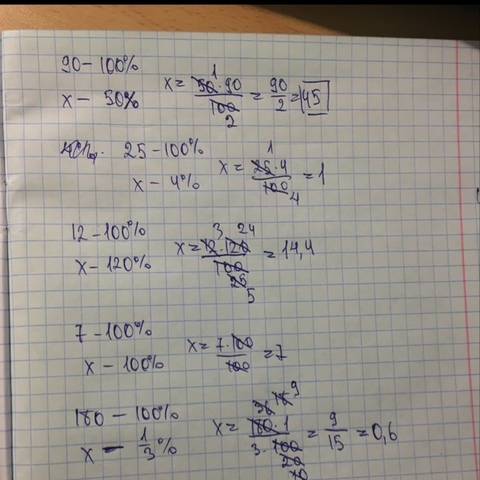 90 – 100%
x – 50%
x = 50·90/100 = 90/2 = 45
1
2
25 – 100%
x – 4%
x = 25·4/100 = 1
1
4
12 – 100%
x – 120%
x = 12·120/100 = 14,4
3 24
25
5
7 – 100%
x – 100%
x = 7·100/100 = 7
180 – 100%
x – 1/3%
x = 180·1/3·100 = 9/15 = 0,6
36 18 9
20
10